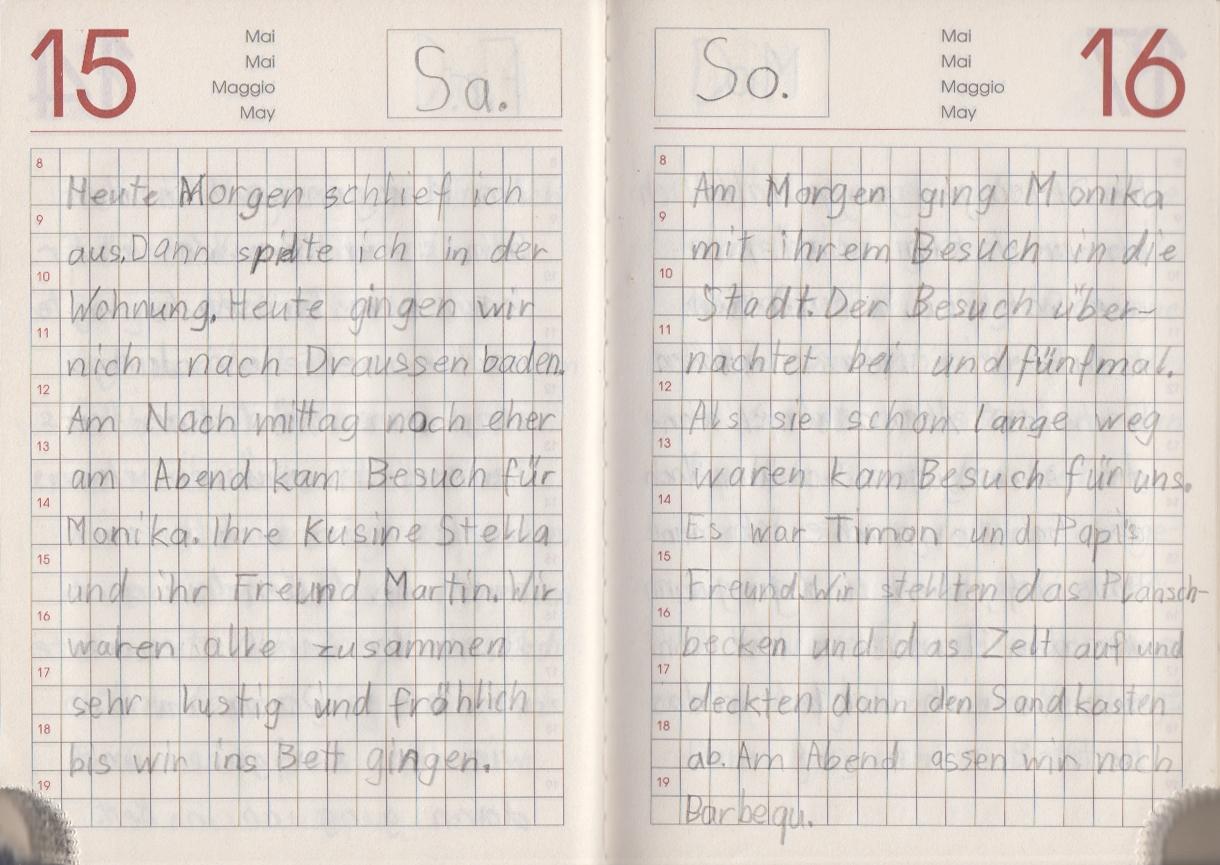 15
Mai
Mai
Maggio
May
Sa.
8
Heute Morgen schlief ich
9
aus. Dann spielte ich in der
10
Wohnung. Heute gingen wir
11
nich nach Draussen baden.
12
Am Nachmittag noch eher
13
am Abend kam Besuch für
14
Monika. Ihre Kusine Stella
15
und ihr Freund Martin. Wir
16
waren alle zusammen
17
sehr lustig und fröhlich
18
bis wir ins Bett gingen.
19
So.
Mai
Mai
Maggio
May
16
8
Am Morgen ging Monika
9
mit ihrem Besuch in die
10
Stadt. Der Besuch über-
11
nachtet bei und fünfmal.
12
Als sie schon lange weg
13
waren kam Besuch für uns.
14
Es war Timon und Papi's
15
Freund. Wir stellten das Plansch-
16
becken und das Zelt auf und
17
deckten dann den Sandkasten
18
ab. Am Abend assen wir noch
19
Barbequ.